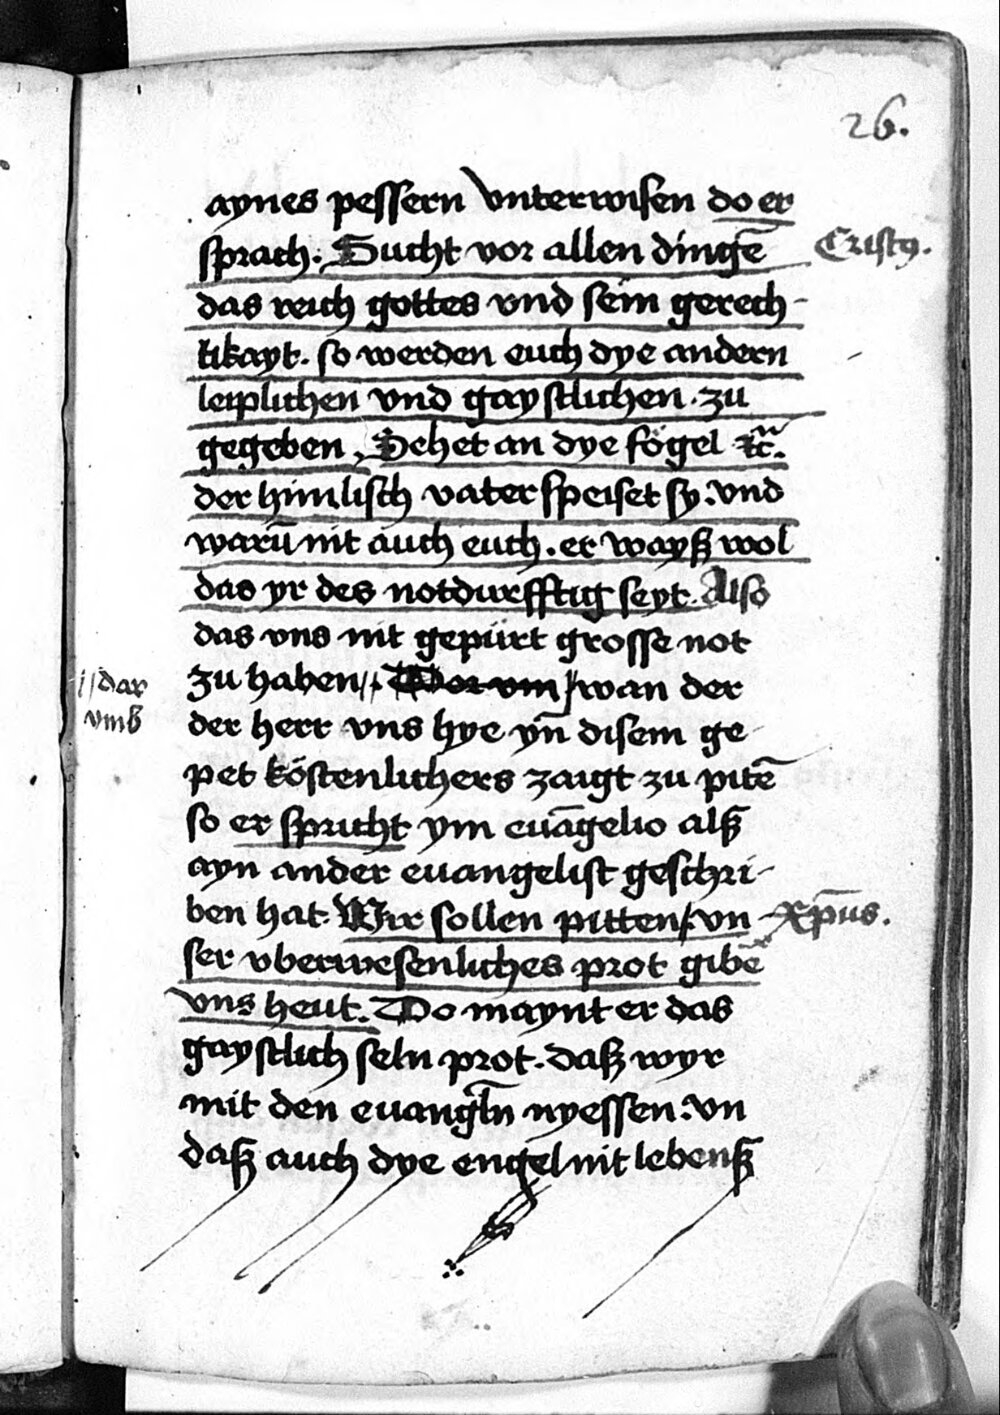 26.
aynes pessern vnterwisen do er
sprach: Sucht vor allen dingē
Cristꝰ.
das reich gottes vnd sein gerech-
tikayt. so werden euch dye andern
leiplichen vnd gaystlichen zu
gegeben, Sehet an dye fögel ꝛc̃.
der himlisch vater speiset sy: vnd
warū nit auch euch. er wayß wol
das yr des notdurfftig seyt. Also
das vns nit gepürt grosse not
zu haben, Dor vm wan der
dar
vmb
der herr vns hye yn̄ disem ge
pet köstenlichers zaigt zu pitē
so er spricht ym euāgelio alß
ayn ander euangelist geschri-
ben hat. Wir sollen pitten, vn
Xp̄us.
ser vberwesenliches prot gibē
vns heut. Do maynt er das
gaystlich seln prot. daß wyr
mit den euangl̄n nyessen: vn
daß auch dye engel mit lebenß